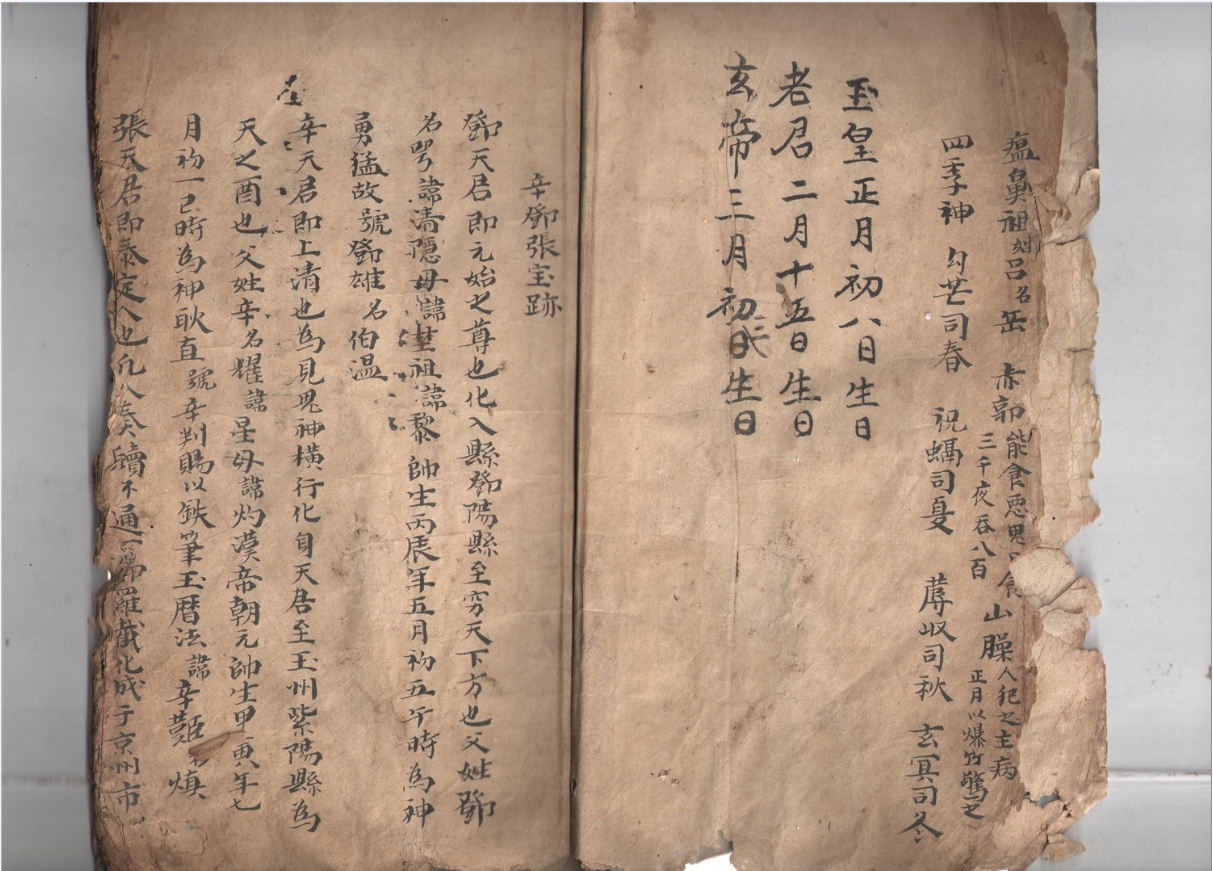 瘟鼻祖姓吕名岳 赤郭能食恶鬼
三千夜吞八百
山臊人犯之主病
正月以爆竹驚之
四季神 勾芒司春 祝蠣司夏 蓐收司秋 玄冥司冬
玉皇正月初八日生日
老君二月十五日生日
玄帝三月初日生日
辛鄧張宝跡
鄧天君即元始之尊也化入縣鄧陽縣至穷天下方也父姓鄧
名諱濤隱母諱祖諱黎 帥生丙辰年五月初五午時為神
勇猛故號鄧雄名伯温
辛天君即上清也為見鬼神横行化自天君至玉州紫陽縣為
天之酉也父姓辛名耀諱星母諱灼漢帝朝元帥生甲寅年七
月初一巳時為神耿直號辛判賜以鉄筆玉曆法諱辛
張天君即泰定人也 奏牘不通 化成于京州市